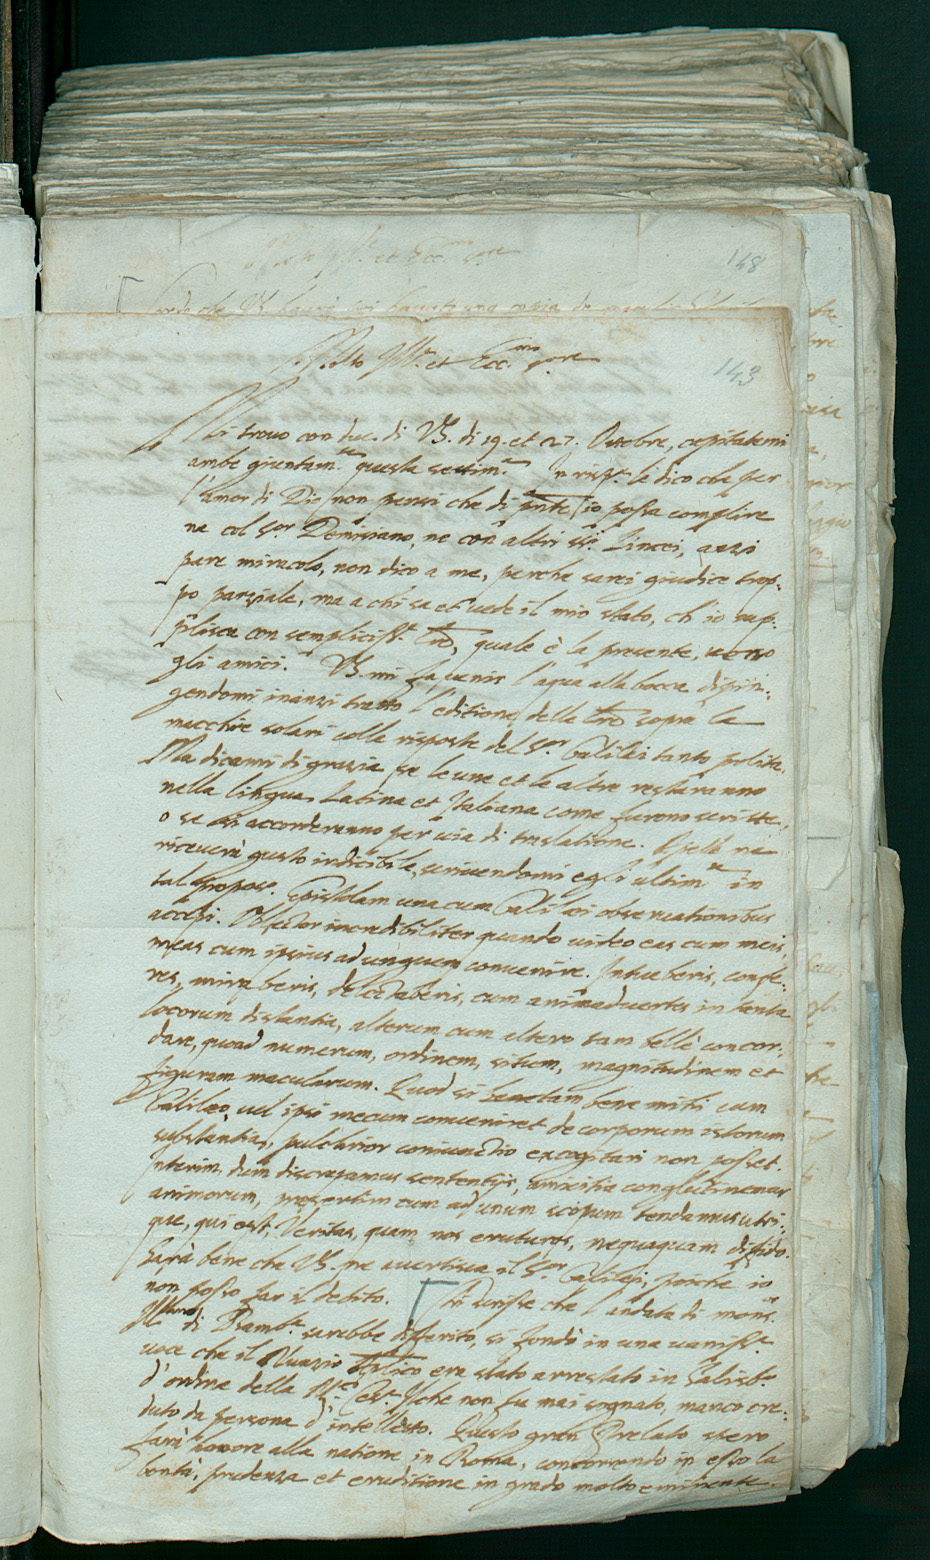 148
et Ecc.mo
143
Molto Ill.re et Ecc.mo S.ore
Mi trovo con due di VS. di 19. et 27. Ottobre, capitatemi
ambe giuntam.te questa settim.a In risp.ta le dico che per
l'amor di Dio non pensi che di pnte io possa complire
ne col S.or Demisiano, ne con altri ss.ri Lincei, anzi
pare miracolo, non dico a me, perche sarei giudice trop-
po parziale, ma a chi sa et vede il mio stato, ch'io sup-
plisca con semplicis.a lrã, quale è la presente, verso
gli amici. VS. mi fa venir l'aqua alla bocca dipin-
gendomi inanzi tratto l'editione della lrã sopra le
macchie solari colle risposte del S.or Galilei tanto polita.
Ma dicami di grazia se le une et le altre restaranno
nella lingua Latina et Italiana come furono scritte,
o se si accorderanno per via di traslatione. Apelle ne
riceverà gusto indicibile, scrivendomi egli ultim.te in
tal proposo. Epistolam una cum Galilei observationibus
accepi. Oblector incredibiliter quando video eas cum meis,
meas cum ipsius ad unguem convenire. Intueberis, confe-
res, miraberis, delectaberis, cum animadvertes in tanta
locorum distantia, alterum cum altero tam bellè concor-
dare, quoad numerum, ordinem, situm, magnitudinem et
figuram macularum. Quod si tam bene mihi cum
Galilæo, vel ipsi mecum conveniret de corporum istorum
substantia, pulchrior coniunctio excogitari non posset.
Interim, dum discrepamus sententijs, amicitia conglutinemur
animorum, præsertim cum ad unum scopum tendamus utri-
que, qui est, Veritas, quam nos eruturos, nequaquam diffido.
Sarà bene che VS. ne avertisca il S.or Galilei, poiche io
non posso far il debito. Chi scrisse che l'andata di mons.or
Ill.mo di Bamb.a sarebbe differito, si fondò in una vaniss.a
voce che il Nunzio Aplico era stato arrestato in Salisb.o
d'ordine della M.tà Ces.a Il che non fu mai sognato, manco cre-
duto da persona d'intelletto. Questo gran Prelato spero
farà honore alla natione in Roma, concorrendo in esso la
bontà, prudenza et eruditione in grado molto eminente.